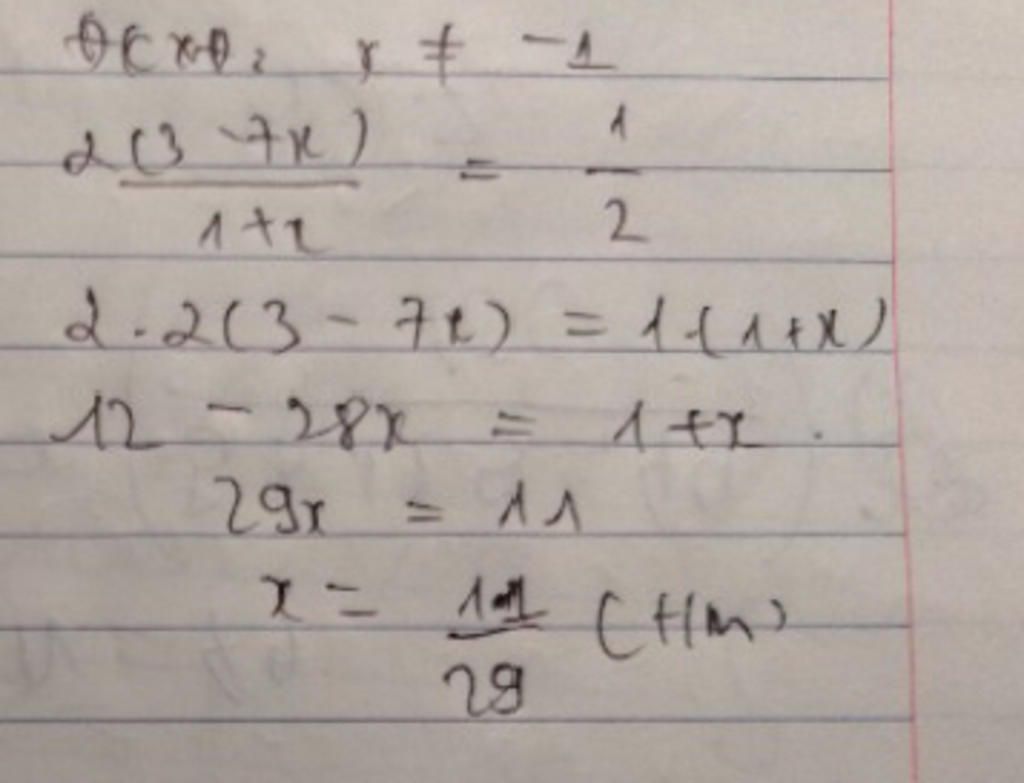 ĐKXĐ: x ≠ -1
2(3 - 7x) / 1+x = 1/2
2.2(3 - 7x) = 1(1+x)
12 - 28x = 1+x.
29x = 11
x = 11/29 (t/m)